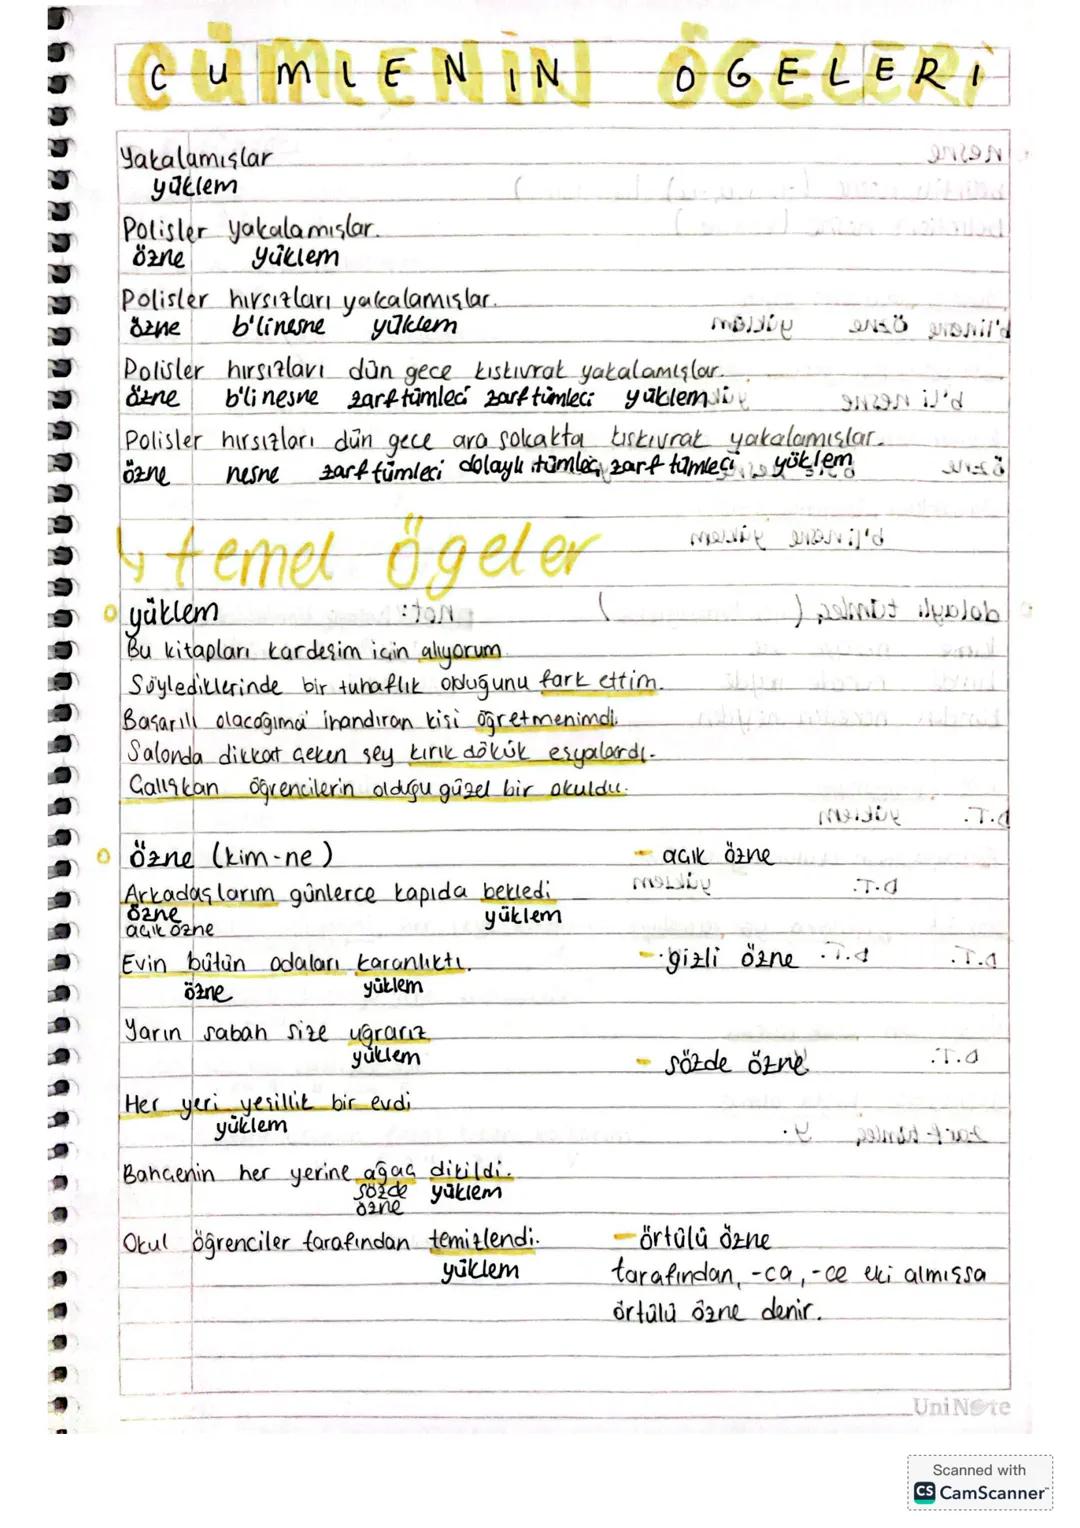 CÜMLENİN ÖGELERİ
Yakalamışlar
yüklem
Polisler yakalamışlar.
özne yüklem
Polisler hırsızları yakalamışlar.
özne b'linesne yüklem
Polisler hırsızları dün gece kıskıvrak yakalamışlar.
özne b'li nesne zarf tümleci zarf tümleci yüklem
Polisler hırsızları dün gece ara sokakta kıskıvrak yakalamışlar.
özne nesne zarf tümleci dolaylı tümleç zarf tümleci yüklem
↳ temel ögeler
yüklem
Bu kitapları kardeşim için alıyorum
Söylediklerinde bir tuhaflık olduğunu fark ettim.
Başarılı olacağıma inandıran kişi öğretmenimdi.
Salonda dikkat çeken şey kırık dökük eşyalardı.
Çalışkan öğrencilerin olduğu güzel bir okuldu.
özne (kim-ne) - açık özne
Arkadaşlarım günlerce kapıda bekledi
özne yüklem
açık özne
Evin bütün odaları karanlıktı. - gizli özne
özne yüklem
Yarın sabah size uğrarız
yüklem - sözde özne
Her yeri yeşillik bir evdi
yüklem
Bahçenin her yerine ağaç dikildi.
sözde yüklem
özne
Okul öğrenciler tarafından temizlendi. - örtülü özne
yüklem tarafından, -ca, -ce eki almışsa
örtülü özne denir.
UniNote
Scanned with
CS CamScanner